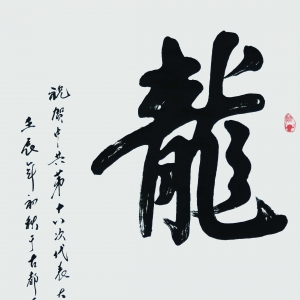 龍
祝贺中共第十八次代表大
壬辰年初秋于古都